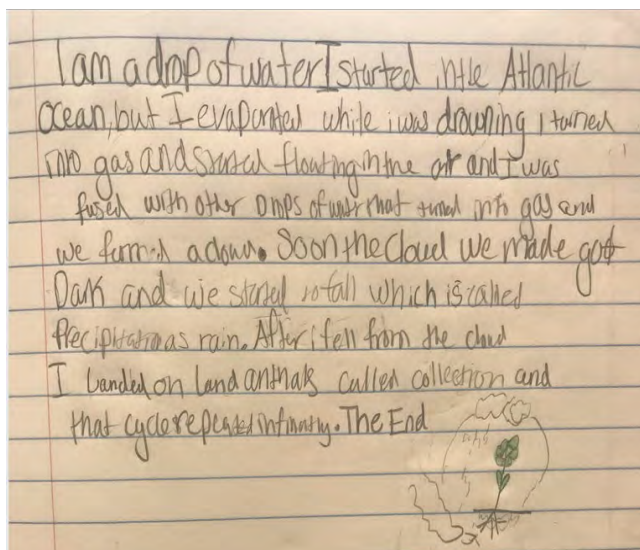 I am a drop of water I started in the Atlantic
ocean, but I evaporated while i was drowning i turned
into gas and started floating in the air and I was
fused with other Drops of water that turned into gas and
we formed a cloud. Soon the Cloud we made got
Dark and we started to fall which is called
Precipitation as rain. After i fell from the cloud
I Landed on land and thats called collection and
that cycle repeated infinatly. The End